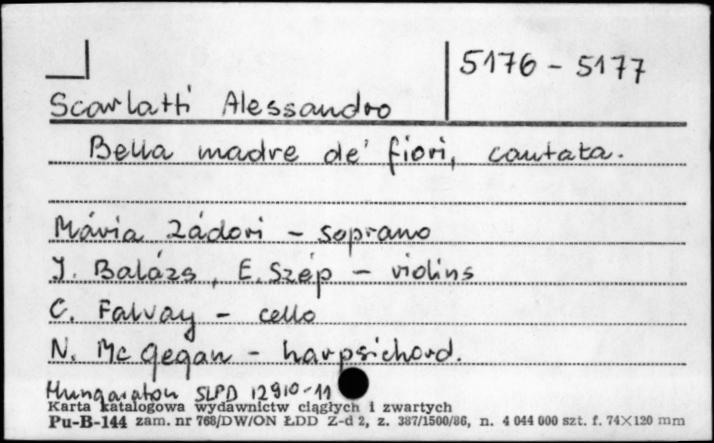 5176 - 5177
Scarlatti Alessandro
Bella madre de' fiori, cantata.
Mária Zádori - soprano
J. Balázs, E. Szép - violins
C. Falvay - cello
N. Mc Gegan - harpsichord.
Hungaroton SLPD 12910-11
Karta katalogowa wydawnictw ciągłych i zwartych
Pu-B-144 zam. nr 768/DW/ON ŁDD Z-d 2, z. 387/1500/86, n. 4 044 000 szt. f. 74×120 mm